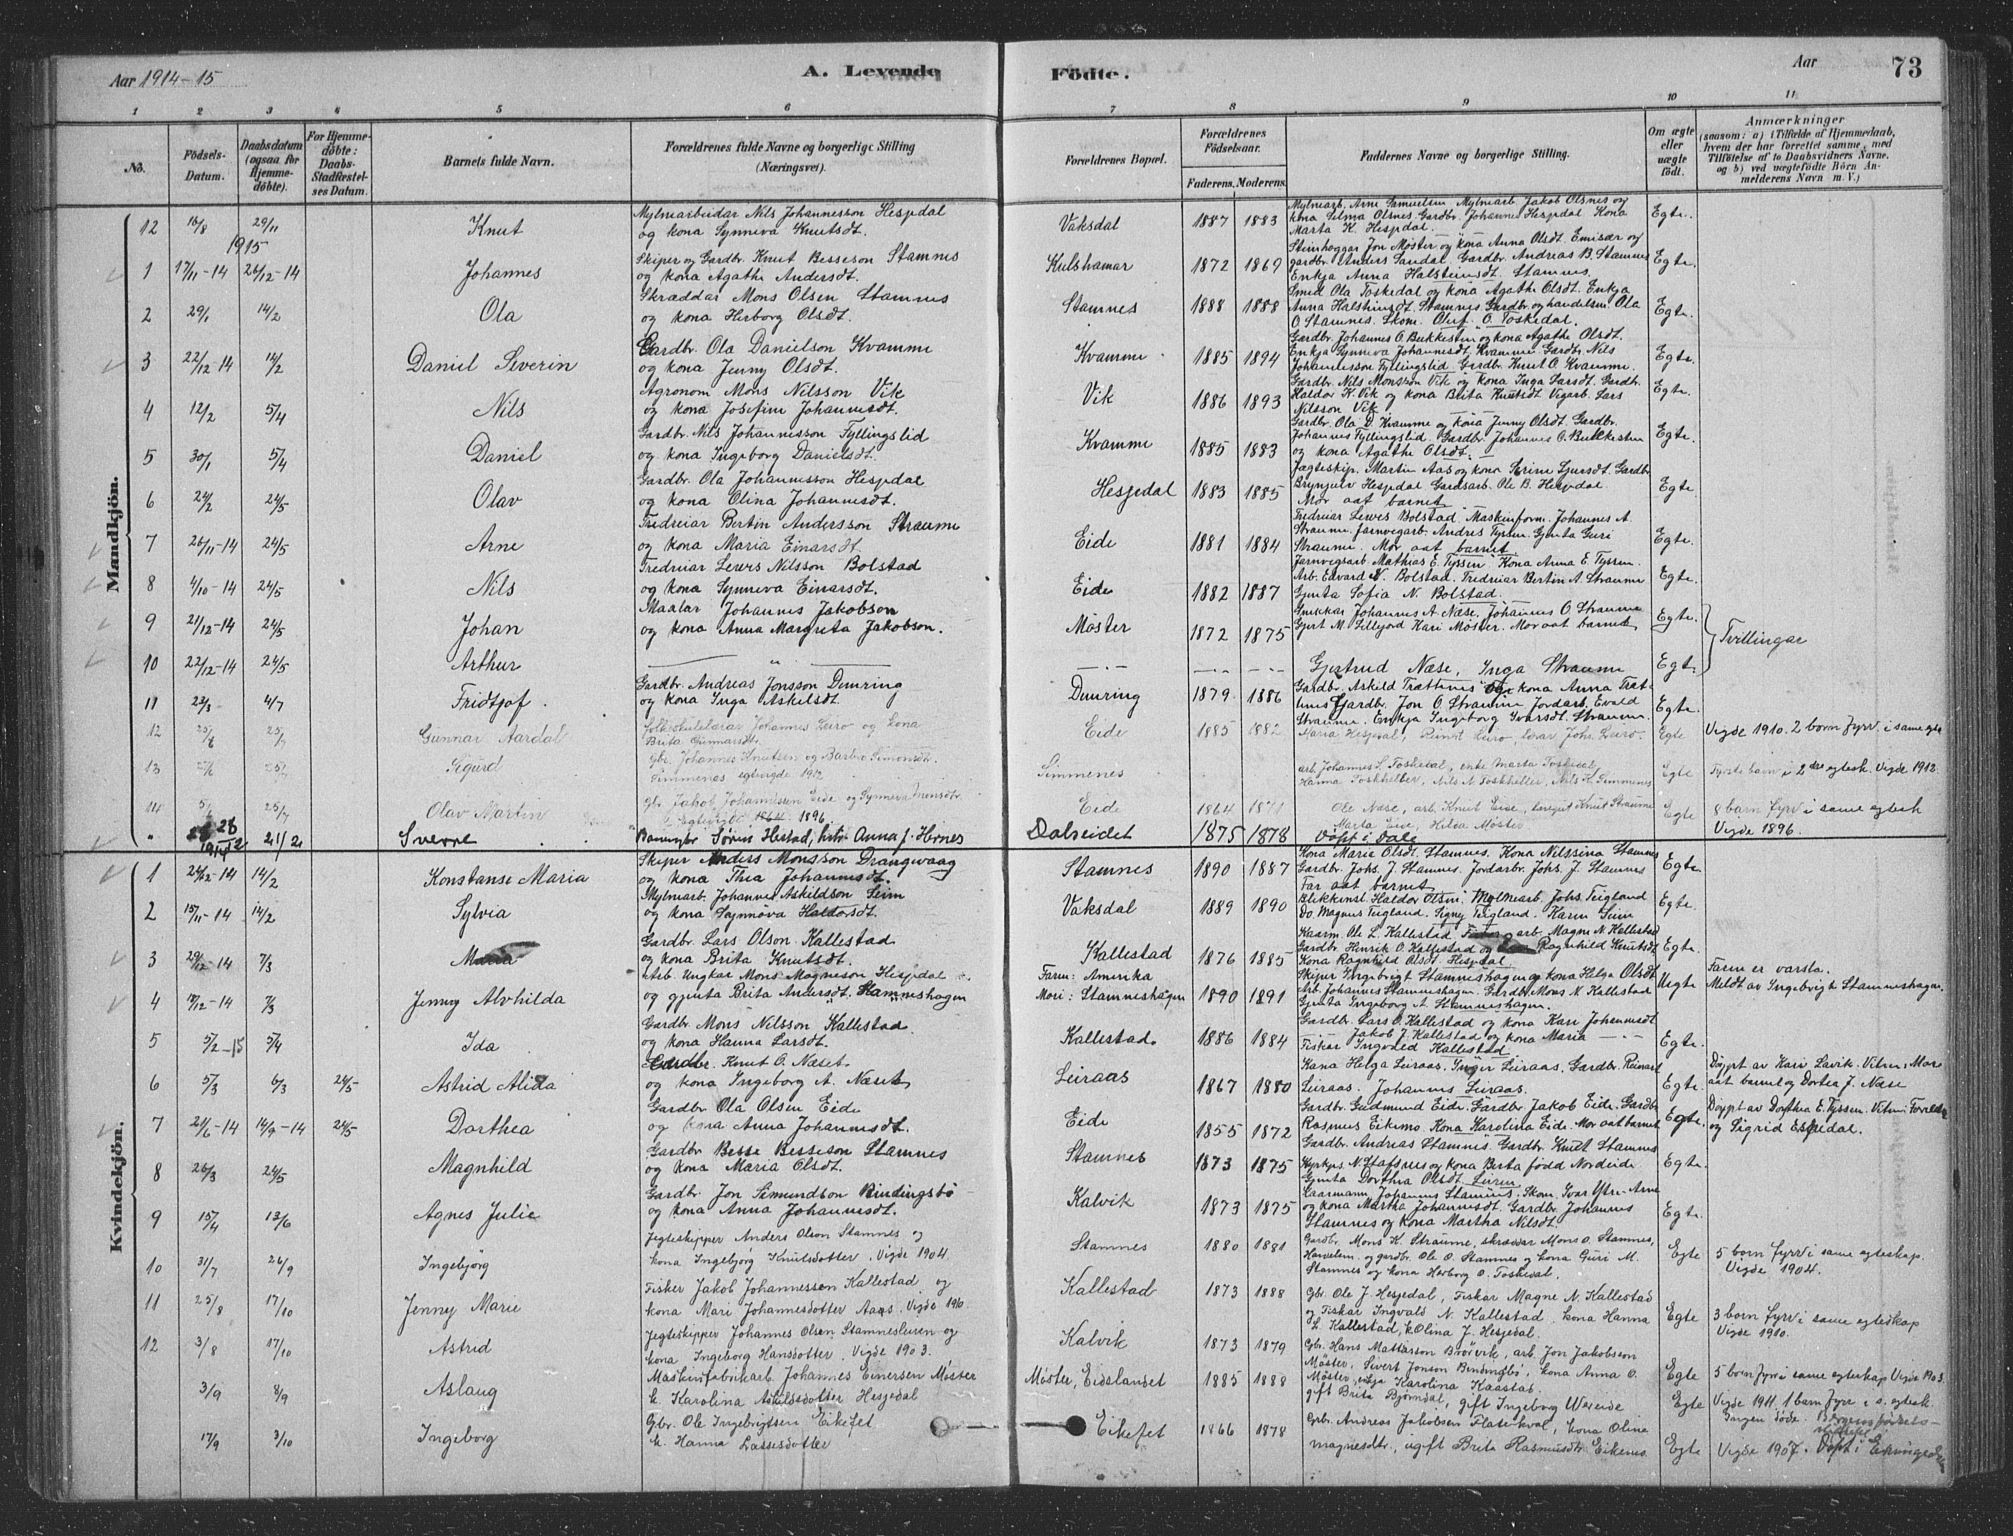 Aar 1914-15 A. Levende Födte. Aar 73
1 2 3 4 5 6 7 8 9 10 11
No. Födsels-Datum. Daabsdatum (ogsaa for Hjemmedöbte). For Hjemmedöbte: Daabs-Stadfæstelses Datum. Barnets fulde Navn. Forældrenes fulde Navne og borgerlige Stilling (Næringsvei). Forældrenes Bopæl. Forældrenes Födselsaar. Faderens. Moderens. Faddernes Navne og borgerlige Stilling. Om ægte eller uægte födt. Anmærkninger (saasom: a) i Tilfælde af Hjemmedaab, hvem der har forrettet samme, med Tilföielse af to Daabsvidners Navne. og b) ved uægtefödte Börn Anmelderens Navn m. V.)
Mandkjön.
12 16/8 29/11 Knut Mylnearbeidar Nils Johannesson Hesjedal og kona Synneva Knutsdt. Vaksdal 1887 1883 Mylnearb. Arne Samuelsen Mylnearb. Jakob Olsnes og kona Selma Olsnes. Gardbr. Johannes Hesjedal Kona Marta K. Hesjedal. Egte.
1915
1 17/11-14 26/12-14 Johannes Skiper og Gardbr. Knut Besseson Stamnes og kona Agathe Andersdt. Kulshamar 1872 1869 Steinhoggar Jon Møster og kona Anna Olsdt. Emisær og gardbr. Anders Sandal. Gardbr. Andreas B. Stamnes Enkja Anna Halsteinsdt. Stamnes. Egte.
2 29/1 14/2 Ola Skræddar Mons Olsen Stamnes og kona Herborg Olsdt. Stamnes 1888 1888 Smed Ola Toskedal og kona Agathe Olsdt. Enkja Anna Halsteinsdt. Stamnes Gardbr. og handelsm. Ola O. Stamnes. Skom. Oluf O. Toskedal. Egte.
3 22/12-14 14/2 Daniel Severin Gardbr. Ola Danielson Kvamme og kona Jenny Olsdt. Kvamme 1885 1894 Gardbr. Johannes O. Bukkesten og kona Agathe Olsdt. Enkja Synneva Johannesdt. Kvamme. Gardbr. Nils Johannesson Fyllingslid Gardbr. Knut O. Kvamme. Egte.
4 12/2 5/4 Nils Agronom Mons Nilsson Vik og kona Josefine Johannesdt. Vik 1886 1893 Gardbr. Nils Monsson Vik og kona Inga Larsdt. Gardbr. Haldor K. Vik og kona Brita Knutsdt Vigarb. Lars Nilsson Vik. Egte.
5 30/1 5/4 Daniel Gardbr. Nils Johannesson Fyllingslid og kona Ingeborg Danielsdt. Kvamme 1885 1883 Gardbr. Ola D. Kvamme og kona Jenny Olsdt. Gardbr. Johannes Fyllingslid. Gardbr. Johannes O. Bukkesten og kona Agathe Olsdt. Egte.
6 24/2 24/5 Olav Gardbr. Ola Johannesson Hesjedal og kona Olina Johannesdt. Hesjedal 1883 1885 Jagteskip. Martin Aas og kona Serine Sjursdt. Gardbr Brynjulv Hesjedal Gardsarb. Ole B. Hesjedal Mor aat barnet Egte.
7 26/11-14 24/5 Arne Tredreiar Bertin Andersson Straume og kona Maria Einarsdt. Eide 1881 1884 Tredreiar Lewes Bolstad. Maskenform. Johannes A. Straume Jarnvegarb. Andres Tyssen Gjenta Guri Straume. Mor aat barnet Egte.
8 4/10-14 24/5 Nils Tredreiar Lewis Nilsson Bolstad og kona Synneva Einarsdt. Eide 1882 1887 Jarnvegsarb. Mathias E. Tyssen Kona Anna E. Tyssen. Arb. Edvard N. Bolstad. Tredreiar Bertin A. Straume Gjenta Sofia N. Bolstad. Egte.
9 21/12-14 24/5 Johan Maalar Johannes Jakobson og kona Anna Margreta Jakobson. Møster 1872 1875 Snikkar Johannes A. Næse. Johannes O Straume Gjert M. Lilljord Kari Møster. Mor aat barnet Egte. Tvillingar
10 22/12-14 24/5 Arthur — " — — . — — . — — . — Gjertrud Næse, Inga Straume Egte.
11 23/3 4/7 Fridtjof. Gardbr. Andreas Jonsson Dunring og kona Inga Askelsdt. Dunring 1879 1886 Gardbr. Askild Trættenes og kona Anna Trættenes Gardbr. Jon O. Straume Jordarb. Evald Straume. Enkja Ingeborg Ivarsdt. Straume. Egte.
12 25/6 25/7 Gunnar Aardal Folkeskulelærar Johannes Leiro og kona Brita Gunnarsdt. Eide 1885 1882 Maria Hesjedal, Leiro, lærar Johs. Leiro. Egte Vigde 1910. 2 born fyrr i same egte
13 25/7 Sigurd Gbr. Johannes Knutsen og Barbro Simonsdt. Simmenes egtevigde 1912 Simmenes arb. Johannes L. Toskedal, enke Marta Toskedal, Hanna Toskheller, Nils N. Toskheller, Nils K. Simmenes Egte Fyrste barn i 2dre egtesk. Vigde 1912.
14 5/7 25/7 Olav Martin Gbr. Jakob Johannesen Eide og Synneva Monsdtr. egtevigde 1896 Eide 1864 1871 Ole Næse, arb. Knut Eide, Knut Straume Marta Eide, Hilda Møster Egte 8 barn fyrr i same egtesk Vigde 1896.
" 28/12 1914 21/2 Sverre Baneingbr Sören Hestad, hstr Anna J. Hernes Dalseidet 1875 1878 Döpt i Dale
Kvindekjön.
1 24/12-14 14/2 Konstanse Maria Skiper Anders Monsson Drangevaag og kona Thea Johannesdt. Stamnes 1890 1887 Kona Marie Olsdt. Stamnes. Kona Nilssina Stamnes Gardbr. Johs. J. Stamnes. Jordarbr. Johs. J. Stamnes Far aat barnet Egte.
2 15/11-14 14/2 Sylvia Mylnearb. Johannes Askildson Seim og kona Synnöva Haldorsdt. Vaksdal 1889 1890 Blikkensl. Haldor Olsen. Mylnearb. Johs. Teigland Do. Magnus Teigland. Signy Teigland. Karen Seim Egte.
3 29/12-14 7/3 Maria Gardbr. Lars Olson Kallestad og kona Brita Knutsdt. Kallestad 1876 1885 Haarm. Ole L. Kallestad arb. Magne N. Kallestad Gardbr. Henrik O. Kallestad og Ragnhild Knutsdt. Kona Ragnhild Olsdt. Hesjedal Egte.
4 18/12-14 7/3 Jenny Alvhilda Arb. Ungkar Mons Magneson Hesjedal og gjenta Brita Andersdt. Stamneshagen Faren: Amerika Mori: Stamneshagen 1890 1891 Skiper Ingebrigt Stamneshagen og kona Helga Olsdt Arb. Johannes Stamneshagen. Gardbr. Mons N. Kallestad Gjenta Ingeborg A. Stamneshagen. Uegte Faren er varsta. Meldt av Ingebrigt Stamneshagen.
5 5/2-15 5/4 Ida Gardbr. Mons Nilsson Kallestad og kona Hanna Larsdt. Kallestad. 1886 1884 Gardbr. Lars O. Kallestad og kona Kari Johannesdt — . — Jakob J. Kallestad og kona Maria — . — Fiskar Ingvald Kallestad Egte.
6 5/3 6/3 24/5 Astrid Alida Gardbr. Knut O. Næset. og kona Ingeborg A. Næset Leiraas 1867 1880 Kona Helga Leiraas, Inger Leiraas. Gardbr. Reinert Leiraas. Johannes Leiraas. Egte. Döypt av Kari Lavik. Vitne: Mor aat barnet og Dortea J. Næse
7 21/6-14 14/9-14 24/5 Dorthea Gardbr. Ola Olsen Eide og kona Anna Johannesdt. Eide 1855 1872 Gardbr. Gudmund Eide. Gardbr. Jakob Eide. Gardbr. Rasmus Eikemo. Kona Karolina Eide. Mor aat barnet Egte. Döypt av Dorthea E. Tyssen. Vitne: Foreldre og Sigrid Espedal.
8 26/3 24/5 Magnhild Gardbr Besse Besseson Stamnes og kona Maria Olsdt. Stamnes 1873 1875 Gardbr. Andreas Stamnes Gardbr. Knut Stamnes Kyrkjes. N. Stafsnes og kona Berta född Nordeide Gjenta Dorthea Olsdt. Leiren Egte.
9 15/4 13/6 Agnes Julie Gardbr. Jon Simundson Bindingsbö og kona Anna Johannesdt. Kalvik 1873 1875 Haarmann Johannes Stamnes. Skom. Ivar Ytre-Arne og kona Martha Johannesdt. Gardbr. Johannes Stamnes og kona Martha Nilsdt. Egte.
10 31/7 26/9 Ingebjörg Jegteskipper Anders Olson Stamnes og kona Ingebjörg Knutsdotter. Vigde 1904. Stamnes 1880 1881 Gardbr. Mons K. Straume, skræddar Mons O. Stamnes, Handelsm. og gardbr. Ole O. Stamnes og kona Guri M. Stamnes og kona Herborg O. Toskedal. Egte 5 born fyrr i same egteskap. Vigde 1904.
11 25/8 17/10 Jenny Marie Fisker Jakob Johannessen Kallestad og kona Mari Johannesdotter Aars. Vigde 1910. Kallestad 1873 1888 Gbr. Ole J. Hesjedal, Fiskar Magne N. Kallestad og Fiskar Ingvald N. Kallestad. kona Hanna L. Kallestad, k. Olina J. Hesjedal. Egte 3 born fyrr i same egteskap Vigde 1910.
12 3/8 17/10 Astrid Jegteskipper Johannes Olsen Stamnesleiren og kona Ingeborg Hansdotter. Vigde 1903. Kalvik 1873 1879 Gbr. Hans Mattesson Bröivik, arb. Jon Jakobsson Møster, Sivert Jonson Bindingbö, kona Anna O. Møster, enkja Karolina Kaastad. Egte 5 born fyrr i same egteskap Vigde 1903.
3/9 8/9 Aslaug Maskinfabrikarb. Johannes Einersen Møster k. Karolina Askilsdotter Hesjedal Møster, Eidslandet 1885 1888 gift Brita Bjørndal, gift Ingeborg Egte Vigde 1911. 1 barn fyrr i s. egtesk. Ingen døde.
17/9 3/10 Ingeborg Gbr. Ole Ingebrigtsen Eikefet k. Hanna Lassesdotter Eikefet 1866 1878 Gbr. Andreas Jakobsen Flatekval, kona Olina Magnesdtr, ugift Brita Rasmusdtr Eikemo. Egte Vigde 1907. Döpt i